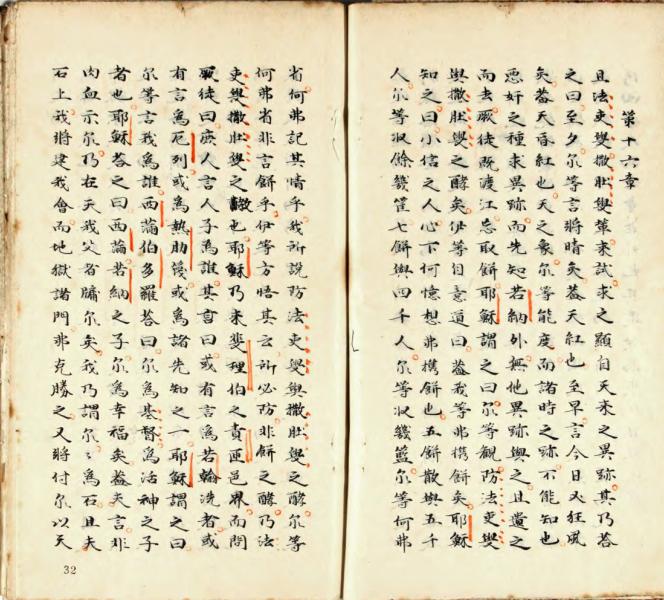 第十六章
且法吏燮撒肚燮輩來試求之顯自天來之異跡其乃答
之曰至夕尔等言將晴矣葢天紅也至早言今日必狂風
矣葢天昏紅也天之象尔等能度而諸時之跡不能知也
悪奸之種求異跡而先知若納外無他異跡與之且遺之
而去厥徒既渡江忘取餅耶穌謂之曰尔等觀防法吏燮
與撒肚燮之酵矣伊等自意道曰葢我等弗攜餅矣耶穌
知之曰小信之人心下何憶想弗攜餅也五餅散與五千
人尔等収餘幾筐七餅與四千人尔等収幾籃尔等何弗
省何弗記其情乎我所說防法吏燮與撒肚燮之酵尔等
何弗省非言餅乎伊等方悟其云所必防非餅之酵乃法
吏燮撒肚燮之教也耶穌乃来斐理伯之責匝邑界而問
厥徒曰庶人言人子為誰其言曰或有言為若翰洗者或
有言為厄列或為熱肋或為諸先知之一耶穌謂之曰
尔等言我為誰西滿伯多羅答曰尔為基督為活神之子
者也耶穌答之曰西滿若納之子尔為幸福矣葢夫言非
肉血示尔乃在天我父者牖尔矣我乃謂尔〻為石且夫
石上我將建我會而地獄諸門弗克勝之又將付尔以天
32